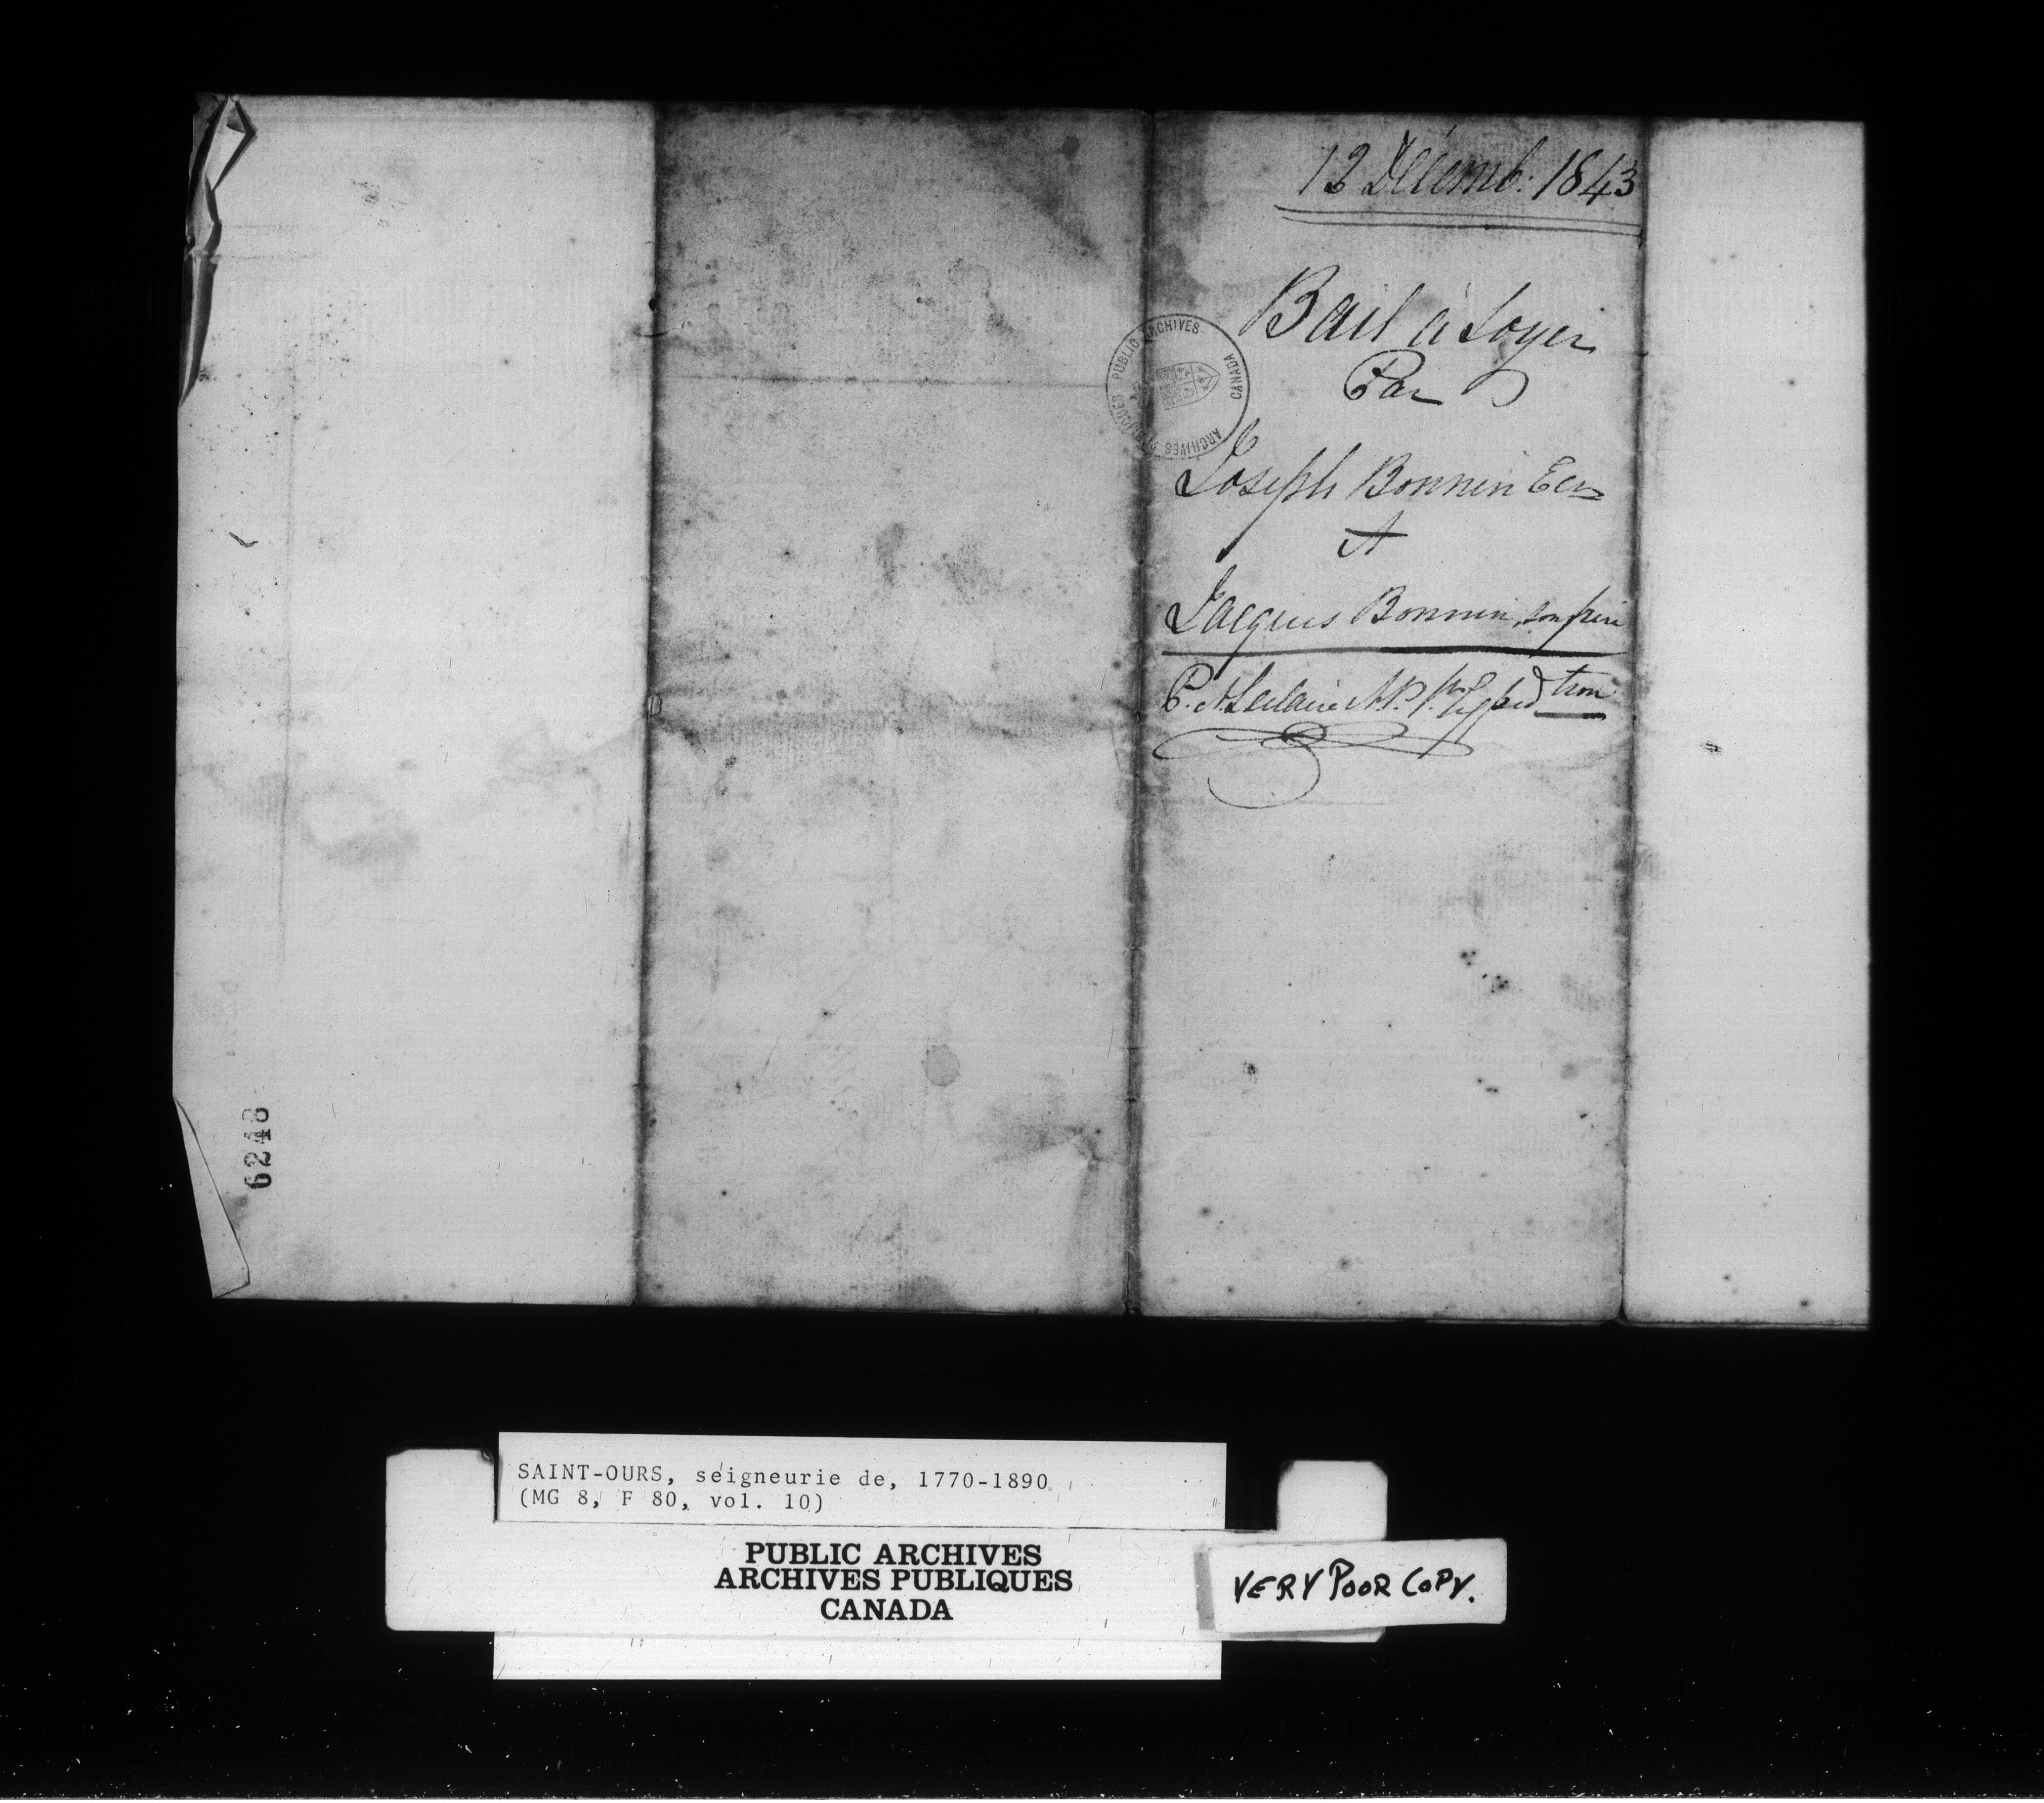 Décemb: 1843
Bail à Loyer
Par
Joseph Bonnin Ecr
A
Jacques Bonnin, son frère
P. A. Leclaire N.P.
PUBLIC ARCHIVES CANADA
ARCHIVES PUBLIQUES
6248
SAINT-OURS, seigneurie de, 1770-1890
(MG 8, F 80, vol. 10)
PUBLIC ARCHIVES
ARCHIVES PUBLIQUES
CANADA
VERY POOR COPY.